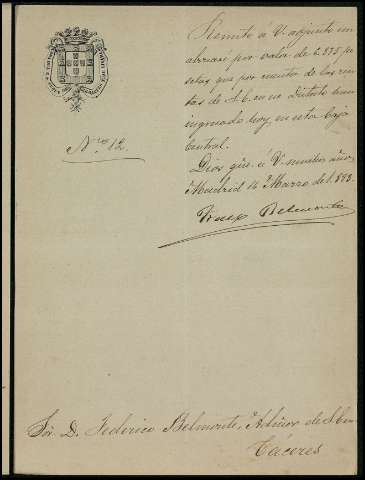 Nro 12.
Remito á V. adjunto un
abonaré por valor de 6.835 pe
setas, que por cuenta de las ren
tas de S.E. en ese Distrito han
ingresado hoy, en esta Caja
Central.
Dios gue. á V. muchos años.
Madrid 14 Marzo de 1.893.
Belmonte
Sor. D. Federico Belmonte, Admor de S.E. en
Cáceres